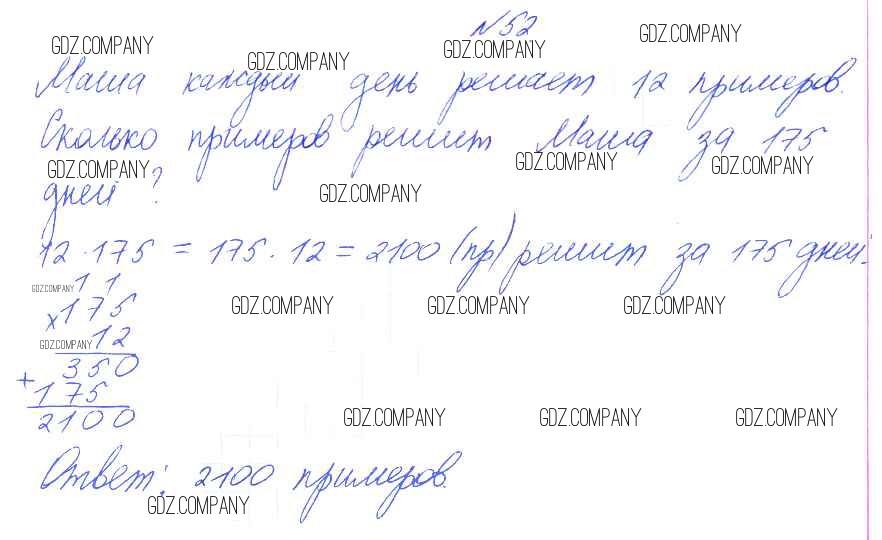 №52
GDZ.COMPANY GDZ.COMPANY GDZ.COMPANY GDZ.COMPANY
Маша каждый день решает 12 примеров.
Сколько примеров решит Маша за 175
GDZ.COMPANY GDZ.COMPANY GDZ.COMPANY GDZ.COMPANY
дней?
12 · 175 = 175 · 12 = 2100 (пр) решит за 175 дней.
GDZ.COMPANY 1 1
GDZ.COMPANY GDZ.COMPANY GDZ.COMPANY
x175
GDZ.COMPANY 12
350
+
175
2100
GDZ.COMPANY GDZ.COMPANY GDZ.COMPANY
Ответ: 2100 примеров.
GDZ.COMPANY